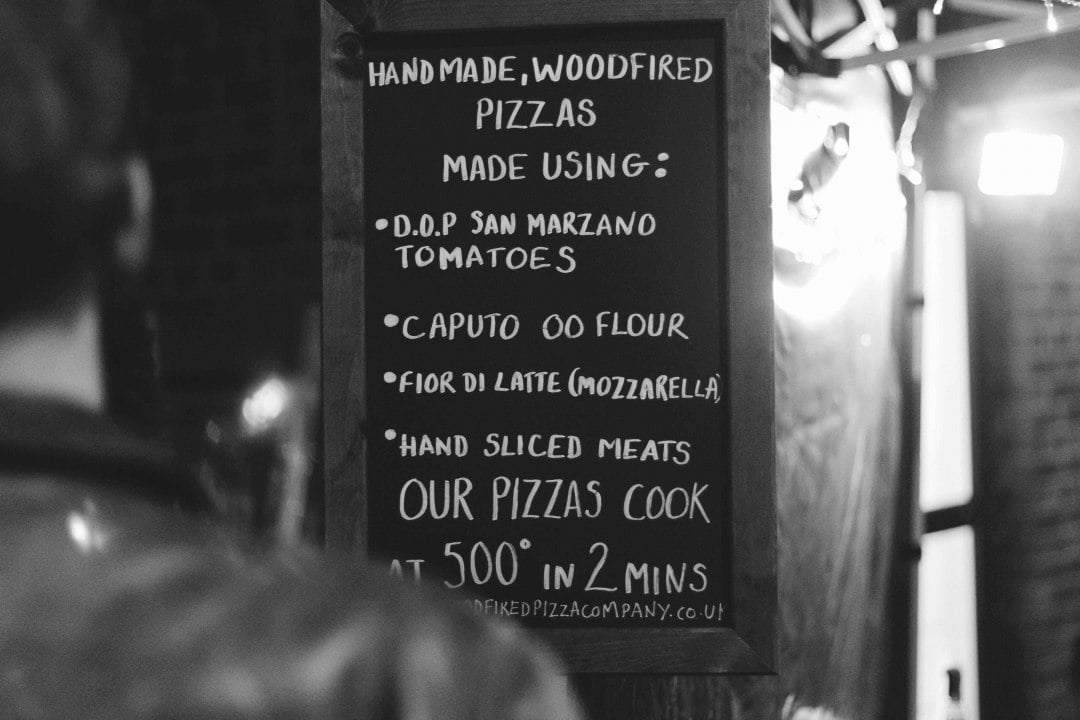 HANDMADE, WOODFIRED
PIZZAS
MADE USING:
• D.O.P SAN MARZANO
TOMATOES
• CAPUTO 00 FLOUR
• FIOR DI LATTE (MOZZARELLA)
• HAND SLICED MEATS
OUR PIZZAS COOK
AT 500° IN 2 MINS